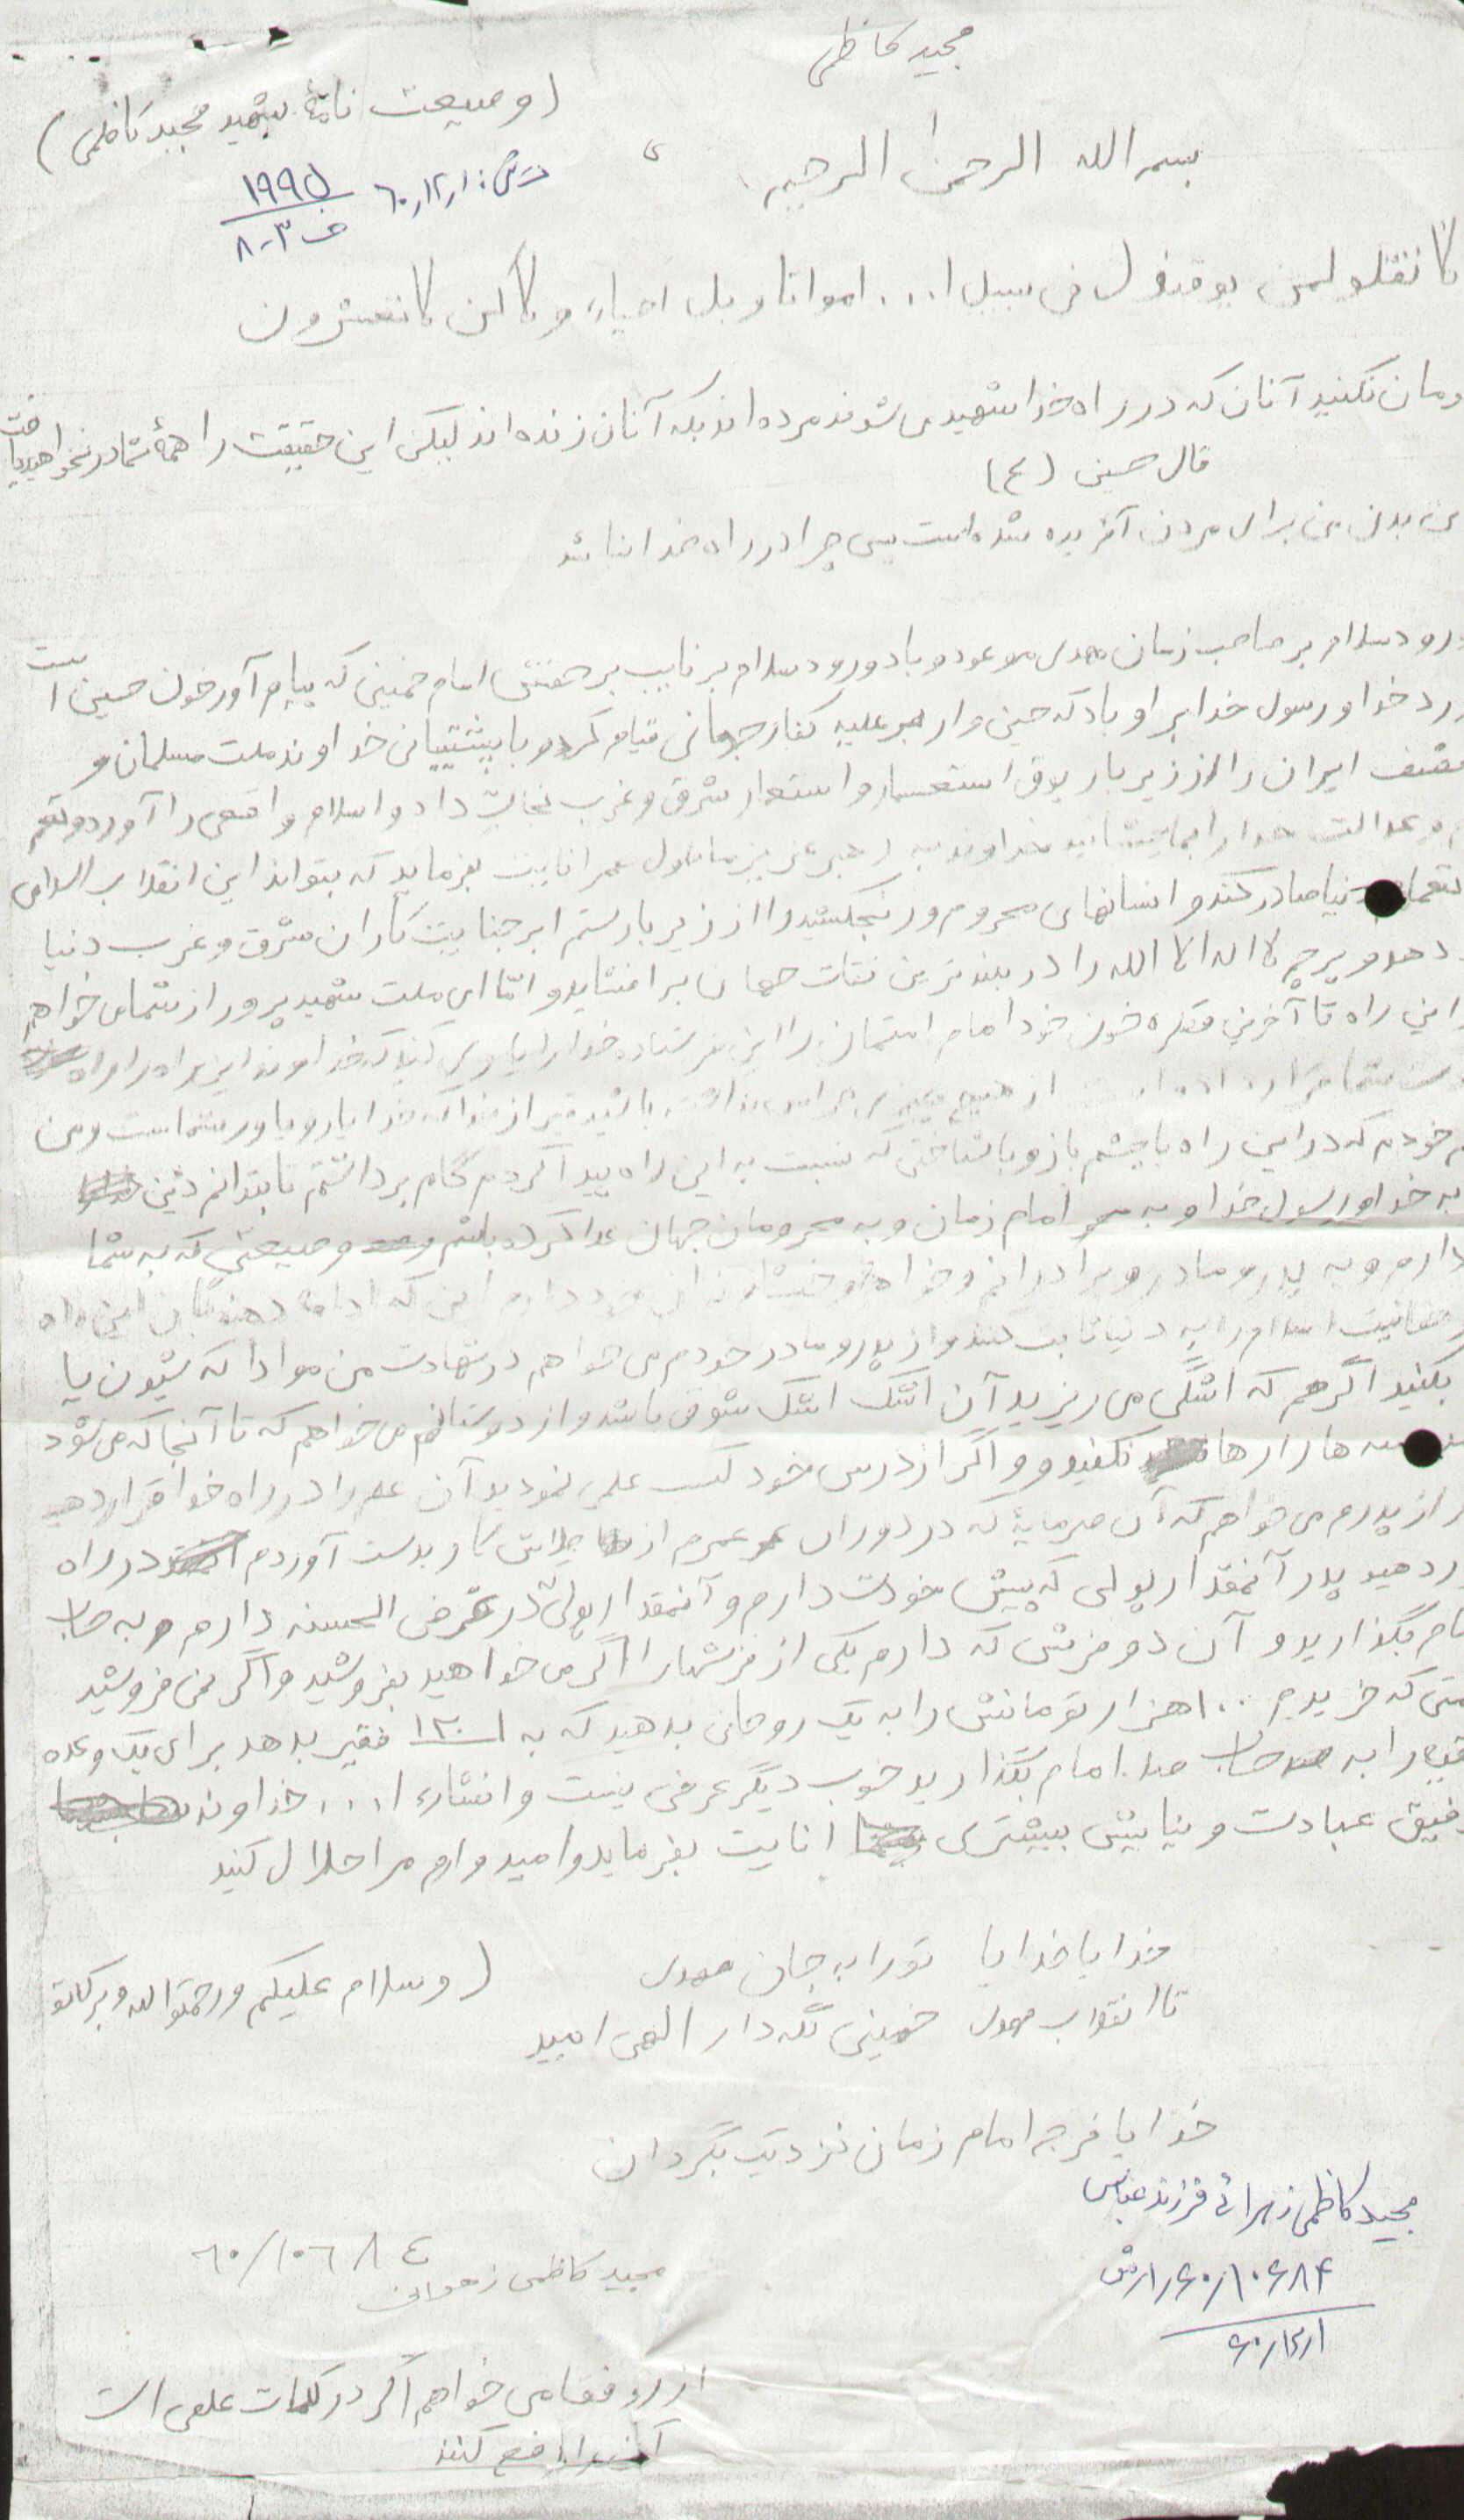 مجید کاظمی
(وصیعت نامهٔ شهید مجید کاظمی)
بسم الله الرحمن الرحیم
۶۰٫۱۲٫۱
۱۹۹۵
ف ۳-۸
لا تقلو لمن یوقتول فی سبیل ا... امواتا و بل احیاء و لاکن لا تعشرون
ومان نکنید آنان که در راه خدا شهید می شوند مرده اند بلکه آنان زنده اند لیکن این حقیقت را همهٔ شما در نخواهید یافت
قال حسین (ع)
این بدن من برای مردن آفریده شده است پس چرا در راه خدا نباشد
درود سلام بر صاحب زمان مهدی موعود و با درود سلام بر نایب بر حقش امام خمینی که پیام آور خون حسین است
درد خدا و رسول خدا بر او باد که حسین وار بر علیه کفار جهانی قیام کرد و با پشتیبانی خداوند ملت مسلمان و
ایران را از زیر بار یوق استعمار و استعمار شرق و غرب نجات داد و اسلام واقعی را آورد و
و عدالت خدا را خداوند به رهبر عزیز ما طول عمر انایت بفرماید که بتواند این انقلاب اسلامی
دنیا صادر کند و انسانهای محروم و رنجکشید را از زیر بار ستم ابر جنایت کاران شرق و غرب دنیا
دهد و پرچم لا اله الا الله را در بلند ترین نقات جهان بر افشاید و امّا ای ملت شهید پرور از شما می خواهم
در این راه تا آخرین قطره خون خود امام امتمان را این فرستاده خدا را یاری کنید که خداوند این راه را راه
شما قرار داده از هیچ چیزی هراس نداشته باشید غیر از خدا که خدا یار و یاور شماست و من
خودم که در این راه با چشم باز و با شناختی که نسبت به این راه پیدا کردم گام برداشتم تا بتوانم دین
به خدا و رسول خدا و به امام زمان و به محرومان جهان عدا کرده باشم وصیعتی که به شما
دارم و به پدر و مادر و برادرانم و خواهر و خیشاوندان خود دارم این که ادامهٔ دهندگان این راه
حقانیت اسلام را به دنیا ثابت کنند و از پدر و مادر خودم می خواهم در شهادت من مبادا که شیون یا
بکنید اگر هم که اشگی می ریزید آن اشک اشک شوق باشد و از دوستانم می خواهم که تا آنجا که می شود
ها را رها نکنید و و اگر از درس خود کسب علمی نمودید آن علم را در راه خدا قرار دهید
از پدرم می خواهم که آن صرمایهٔ که در دوران عمرم از تلاش کار بدست آوردم در راه
دهید پدر آنمقدار پولی که پیش خودت دارم و آنمقدار پولی در غرض الحسنه دارم و به حساب
امام بگذارید و آن دو فرشی که دارم یکی از فرشها را اگر می خواهید بفروشید و اگر نمی فروشید
که خریدم ۱۰۰ هزار تومانش را به یک روحانی بدهید که به ۱۳۰۰ فقیر بدهد برای یک وعده
را به حساب صد امام بگذارید خوب دیگر عرضی نیست و انشاء ا... خداوند
توفیق عبادت و نیایش بیشتری انایت بفرماید و امیدوارم مرا حلال کنید
خدایا خدایا تو را به جان مهدی
تا انقلاب مهدی خمینی نگه دار الهی امید
(وسلام علیکم و رحمتوالله و برکاتو
خدایا فرجه امام زمان نزدیک بگردان
مجید کاظمی زهرائی فرزند عباس
۶۰/۱۰۶۸۴
۶۰/۱۲/۱
مجید کاظمی زهرائی
۶۰/۱۰۶۸۴
از روفقا می خواهم اگر در کلمات علعی است
آن را رافع کنند